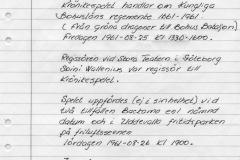 Krönikespelet handlar om Kungliga
Bohusläns regemente 1661-1961
(från gröna dragoner till Bohus Bataljon)
Fredagen 1961-08-25 kl 1330-1600.
Regissören vid Stora Teatern i Göteborg
Wallenius var regissör till
Krönikespelet.
Spelet uppfördes (ej i sin helhet) vid
två tillfällen Backamo enl nämnd
datum och i Uddevalla fritidsparken
på friluftsscenen
lördagen 1961-08-26 kl 1900.